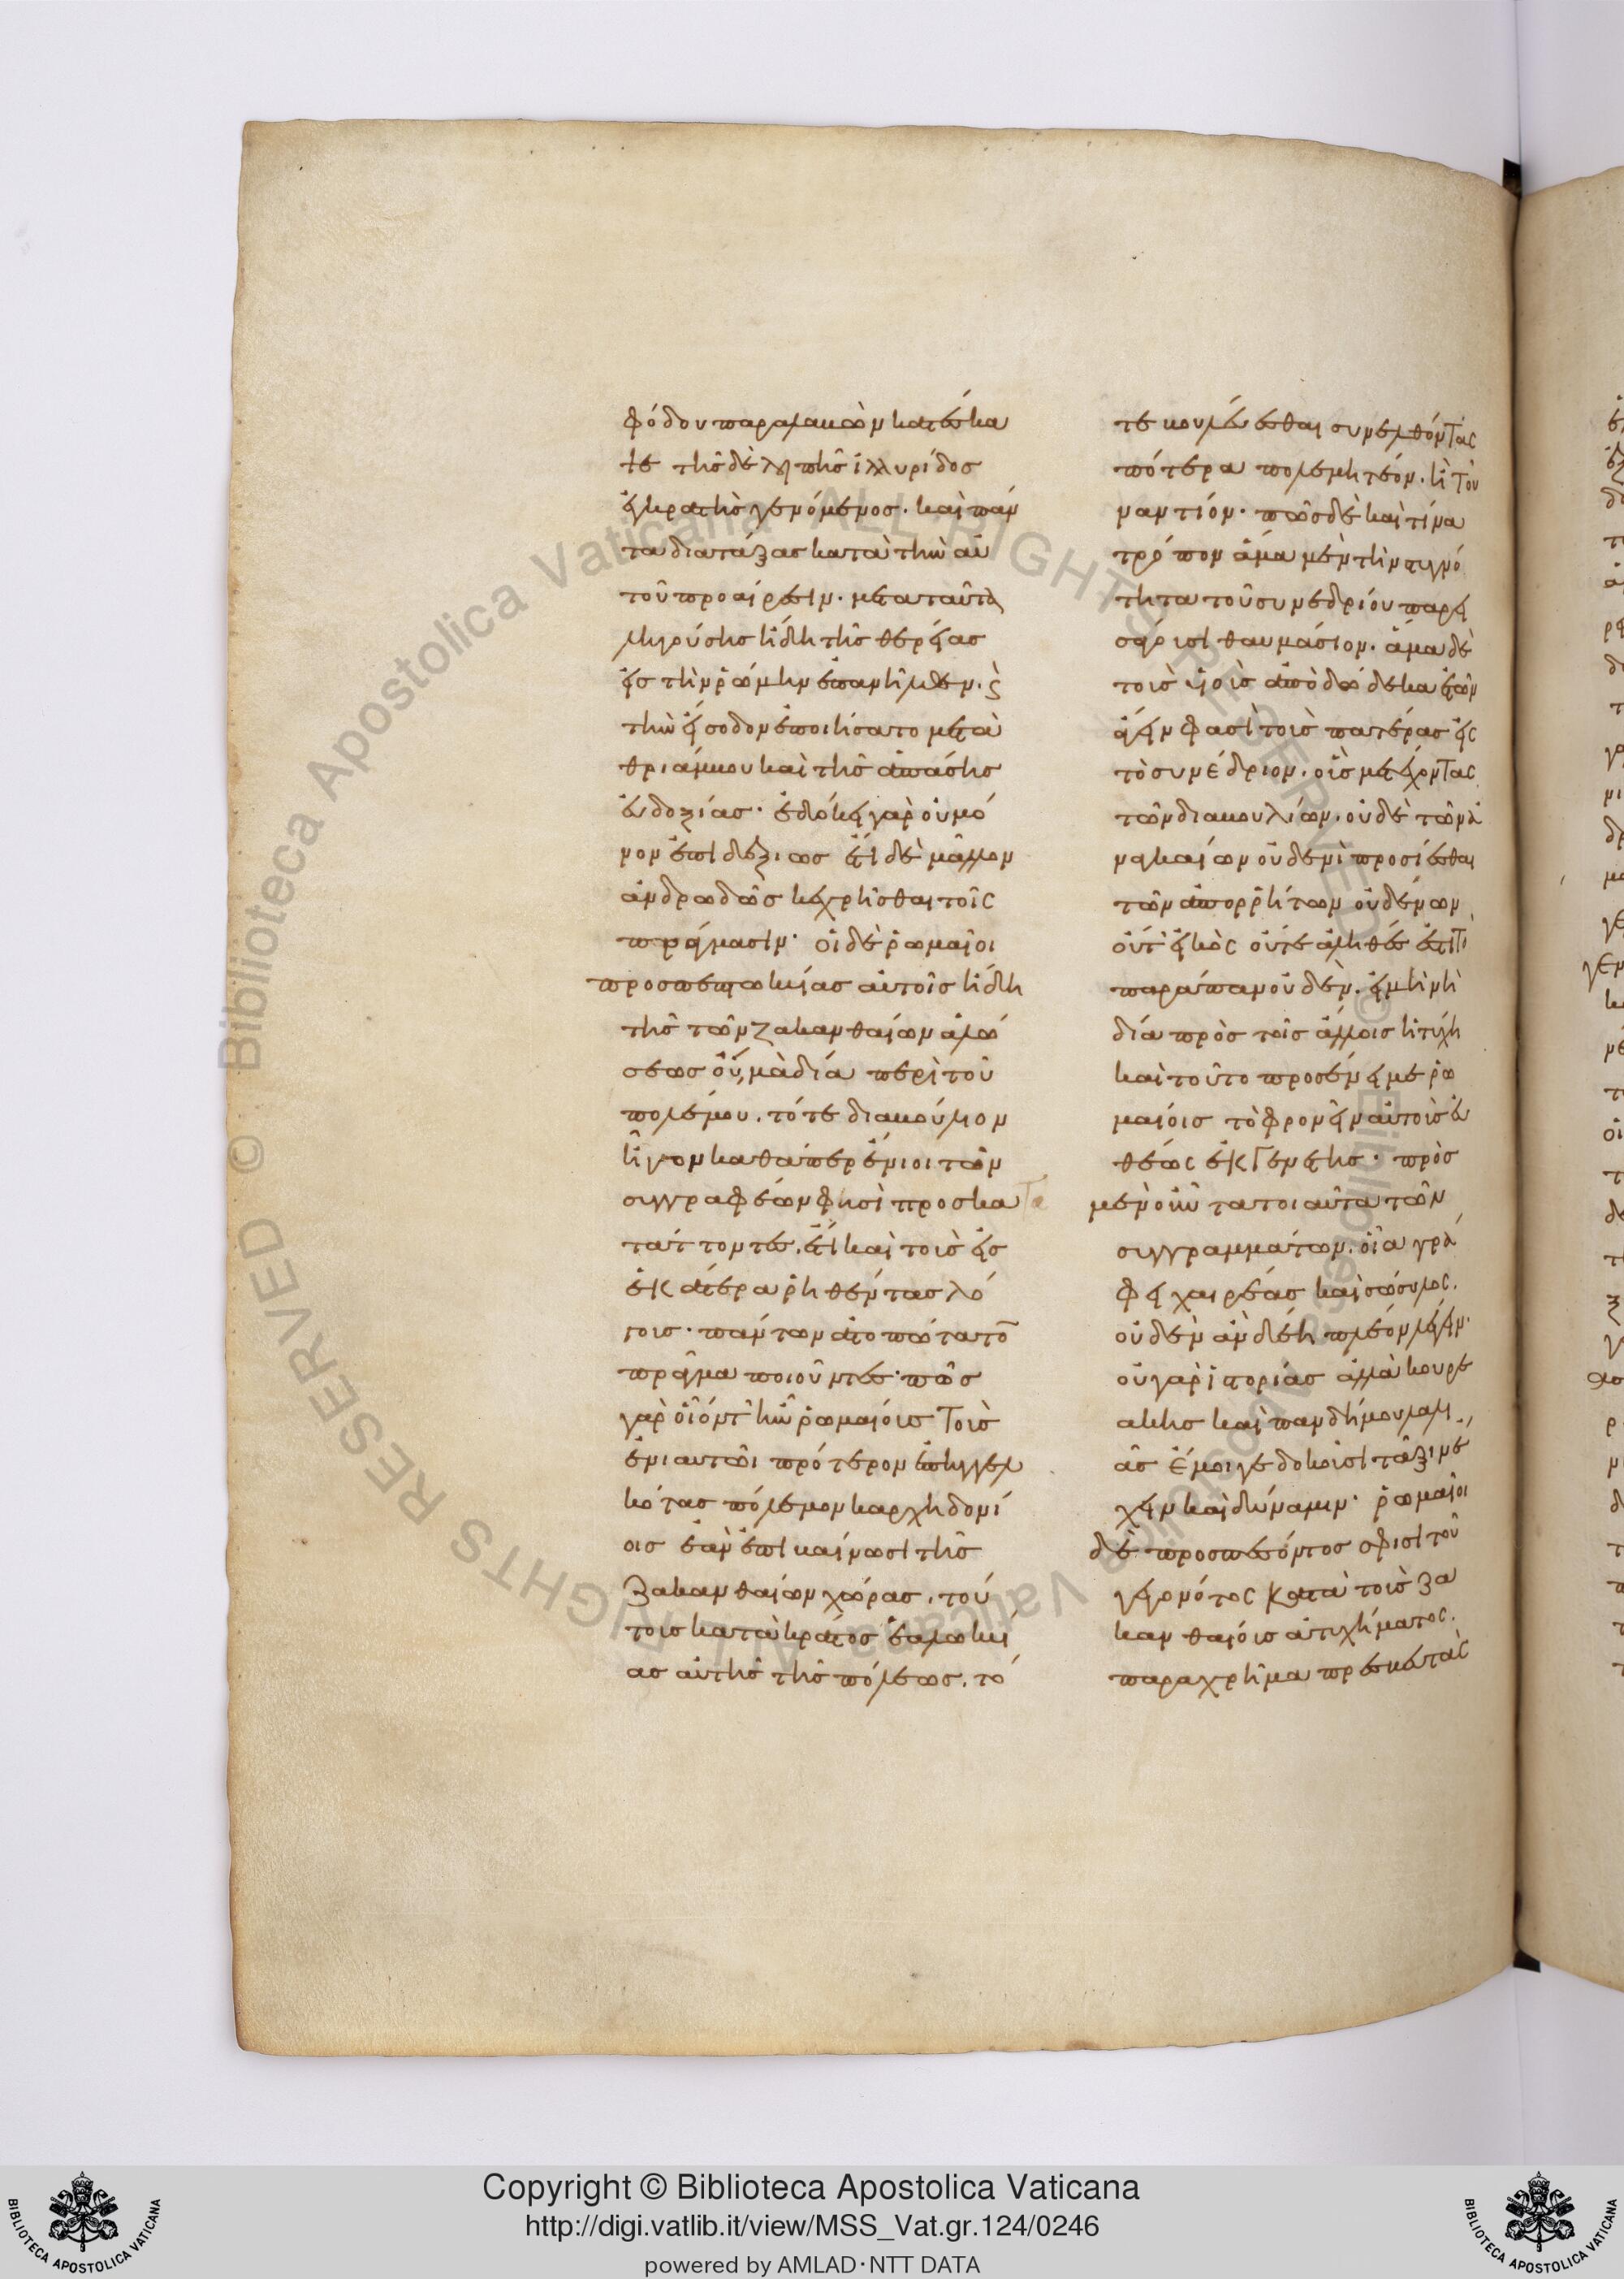 φόδου παραλαβὼν κατέσκα
ψε τῆς δὲ λοιπῆς ἰλλυρίδος
ἐγκρατὴς γενόμενος. καὶ πάν
τα διατάξας κατὰ τὴν αὑ
τοῦ προαίρεσιν. μετὰ ταῦτα
ληγούσης ἤδη τῆς θερείας
εἰς τὴν ῥώμην ἐπανῆλθεν. καὶ
τὴν εἴσοδον ἐποιήσατο μετὰ
θριάμβου καὶ τῆς ἁπάσης
εὐδοξίας. ἐδόκει γὰρ οὐ μό
νον ἐπιδεξίως ἔτι δὲ μᾶλλον
ἀνδρωδῶς κεχρῆσθαι τοῖς
πράγμασιν. οἱ δὲ ῥωμαῖοι
προσπεπτωκυίας αὐτοῖς ἤδη
τῆς τῶν ζακανθαίων ἁλώ
σεως οὐ μὰ δία περὶ τοῦ
πολέμου. τότε διαβούλιον
ἦγον καθάπερ ἔνιοι τῶν
συγγραφέων φησὶ προσκατα
τάττοντες. ἔτι καὶ τοὺς εἰς
ἑκάτερα ῥηθέντας λό
γους. πάντων ἀτοπώτατον
πρᾶγμα ποιοῦντες. πῶς
γὰρ οἷόντ' ἦν ῥωμαίους τοὺς
ἐνιαυτῶι πρότερον ἐπηγγελ
κότας πόλεμον καρχηδονί
οις ἐὰν ἐπιβαίνωσι τῆς
ζακανθαίων χώρας. τού
τους κατὰ κράτος ἑαλωκυί
ας αὐτῆς τῆς πόλεως. τό
τε βουλεύεσθαι συνελθόντας
πότερα πολεμητέον. ἢ τοὐ
ναντίον. πῶς δὲ καὶ τίνα
τρόπον ἅμα μὲν τὴν στυγνό
τητα τοῦ συνεδρίου παρει
σάγουσι θαυμάσιον. ἅμα δὲ
τοὺς υἱοὺς ἀπὸ δώδεκα ἐτῶν
ἄγειν φασὶ τοὺς πατέρας εἰς
τὸ συνέδριον. οὓς μετέχοντας
τῶν διαβουλίων. οὐδὲ τῶν ἀ
ναγκαίων οὐδενὶ προσίεσθαι
τῶν ἀπορρήτων οὐδένων
οὔτ' εἰκὸς οὔτε ἀληθές ἐστι τὸ
παράπαν οὐδὲν. εἰ μὴ νὴ
δία πρὸς τοῖς ἄλλοις ἡ τύχη
καὶ τοῦτο προσένειμε ῥω
μαίοις τὸ φρονεῖν αὐτοὺς εὐ
θέως ἐκ γενετῆς. πρὸς
μὲν οὖν τὰ τοιαῦτα τῶν
συγγραμμάτων. οἷα γρά
φει χαιρέας καὶ σώσυλος.
οὐδὲν ἂν δέη πλέον λέγειν.
οὐ γὰρ ἱστορίας ἀλλὰ κουρε
ακῆς καὶ πανδήμου λαλι
ᾶς ἔμοιγε δοκοῦσι τάξιν ἔ
χειν καὶ δύναμιν. ῥωμαῖοι
δὲ προσπεσόντος σφίσι τοῦ
γεγονότος κατὰ τοὺς ζα
κανθαίους ἀτυχήματος.
παραχρῆμα πρεσβευτὰς
Copyright © Biblioteca Apostolica Vaticana
http://digi.vatlib.it/view/MSS_Vat.gr.124/0246
powered by AMLAD · NTT DATA